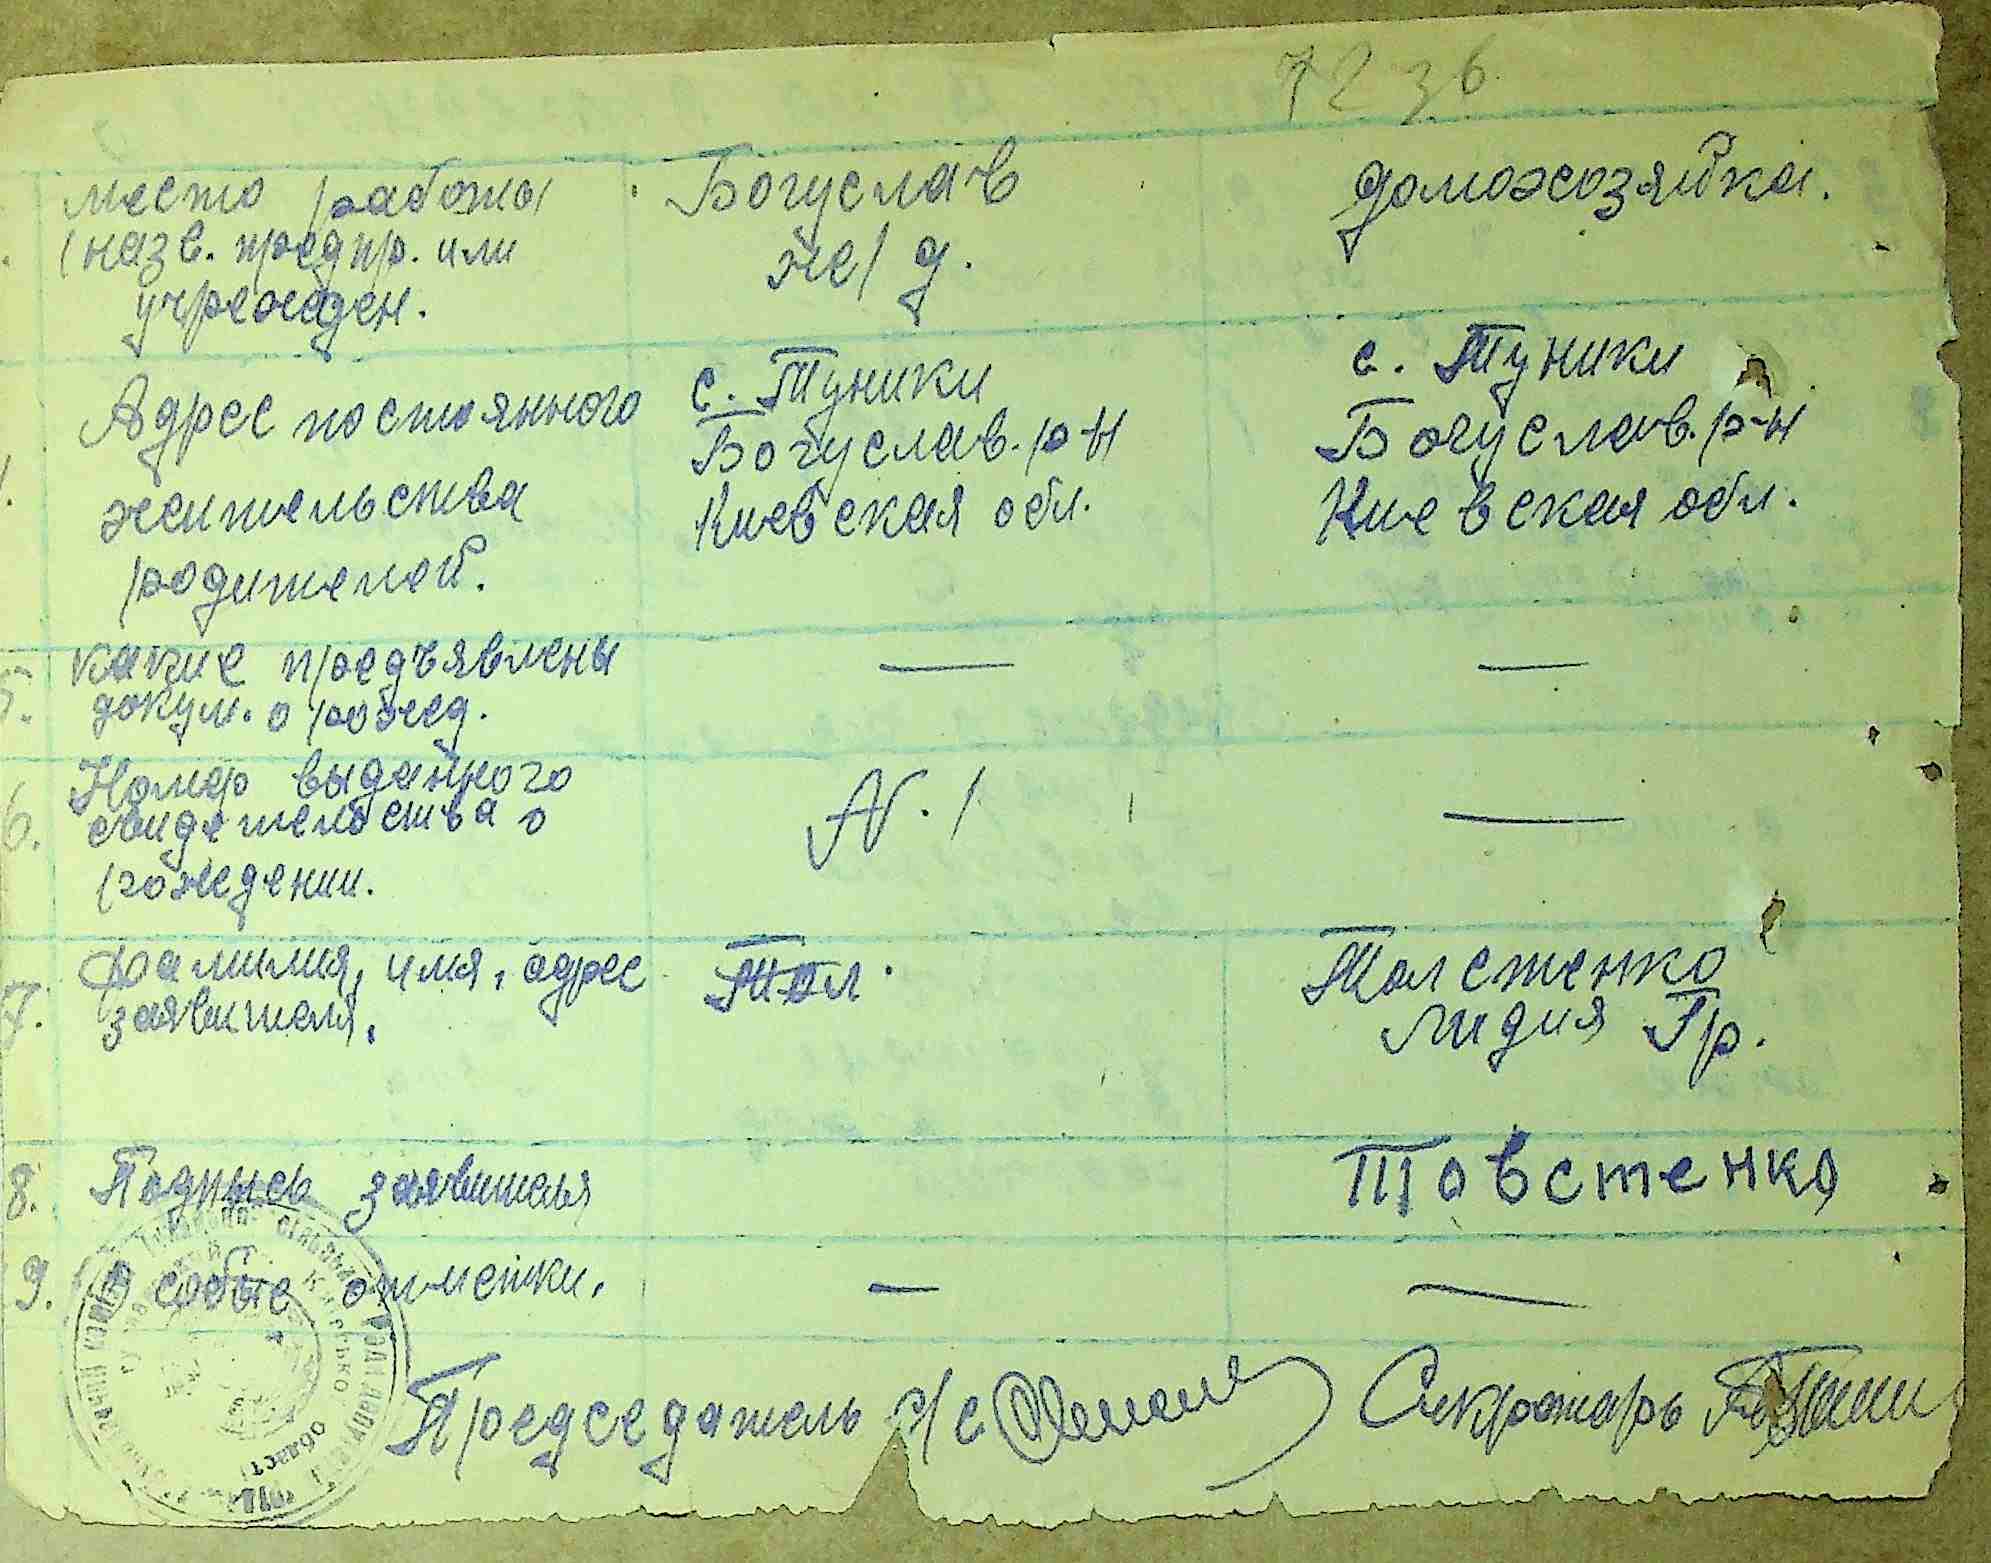 72 зв.
место работы Богуслав домохозяйка.
(назв. предпр. или ж/д.
учрежден.
Адрес постоянного с. Туники с. Туники
Богуслав. р-н Богуслав. р-н
жительства Киевская обл. Киевская обл.
родителей.
5. какие предъявлены — —
докум. о рожд.
6. Номер выданного N. 1 —
свидетельства о
рождении.
7. Фамилия, имя, адрес Тол. Толстенко
заявителя. Лидия Гр.
8. Подпись заявителя Товстенко
9. Особые отметки. — —
Председатель с/с Секретарь